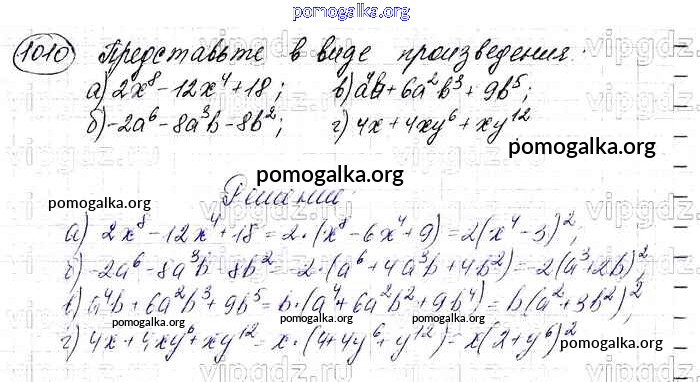 pomogalka.org
1010 Представьте в виде произведения:
а) 2x⁸ - 12x⁴ + 18; в) a⁴b + 6a²b³ + 9b⁵;
б) -2a⁶ - 8a³b - 8b²; г) 4x + 4xy⁶ + xy¹²
pomogalka.org
pomogalka.org
Решение:
pomogalka.org
а) 2x⁸ - 12x⁴ + 18 = 2·(x⁸ - 6x⁴ + 9) = 2(x⁴ - 3)²;
б) -2a⁶ - 8a³b - 8b² = -2·(a⁶ + 4a³b + 4b²) = -2(a³ + 2b)²;
в) a⁴b + 6a²b³ + 9b⁵ = b·(a⁴ + 6a²b² + 9b⁴) = b(a² + 3b²)²;
pomogalka.org pomogalka.org pomogalka.org
г) 4x + 4xy⁶ + xy¹² = x·(4 + 4y⁶ + y¹²) = x(2 + y⁶)²
pomogalka.org